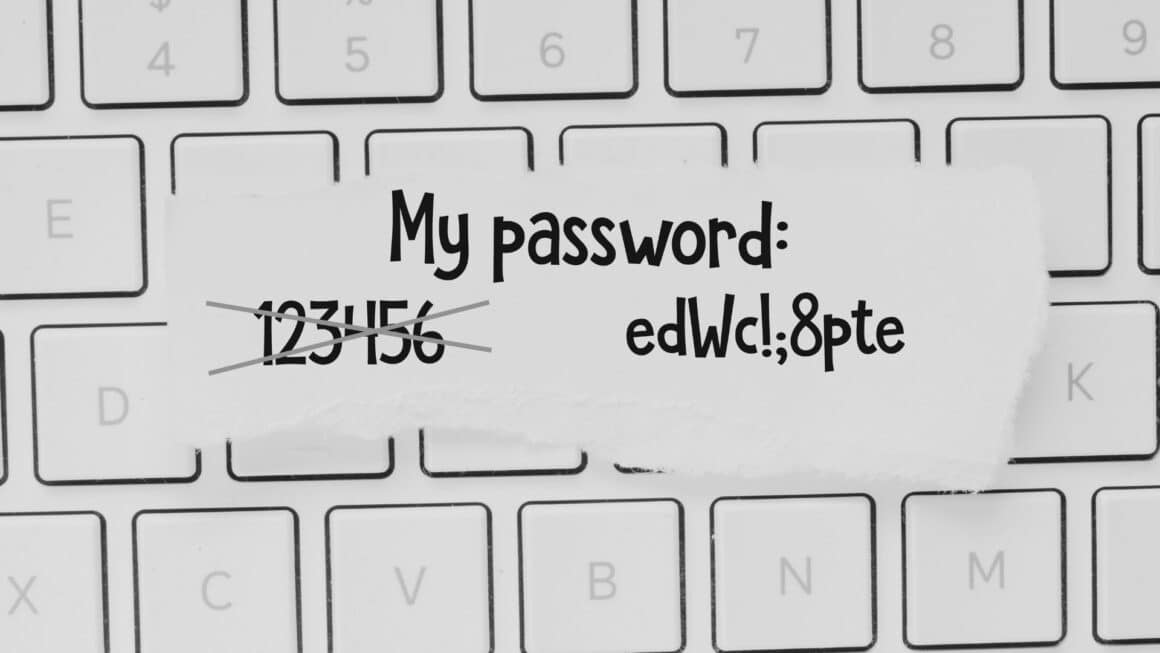 $ %
4 5 6 7 8 9
E
My password:
123456 edWc!;8pte
D K
X C V B N M